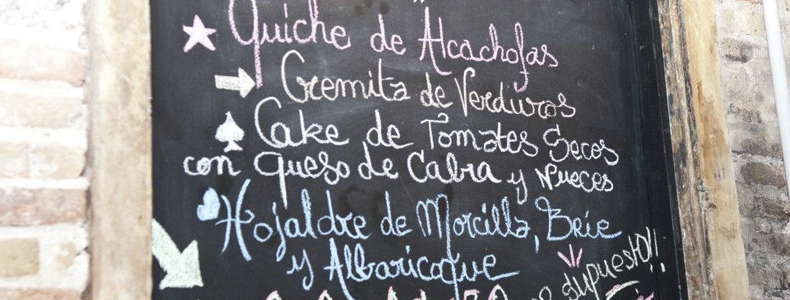 Quiche de Alcachofas
Cremita de Verduras
Cake de Tomates Secos
con Queso de Cabra y Nueces
Hojaldre de Morcilla, Brie
y Albaricoque
supuesto!!